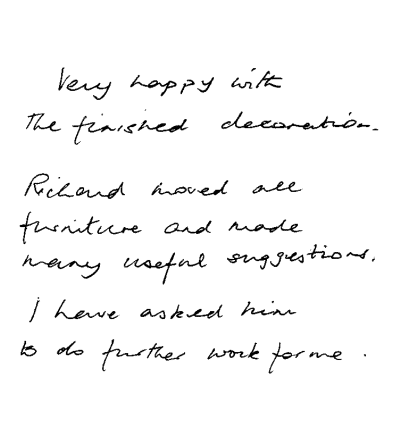 Very happy with
the finished decoration.
Richard moved all
furniture and made
many useful suggestions.
I have asked him
to do further work for me.